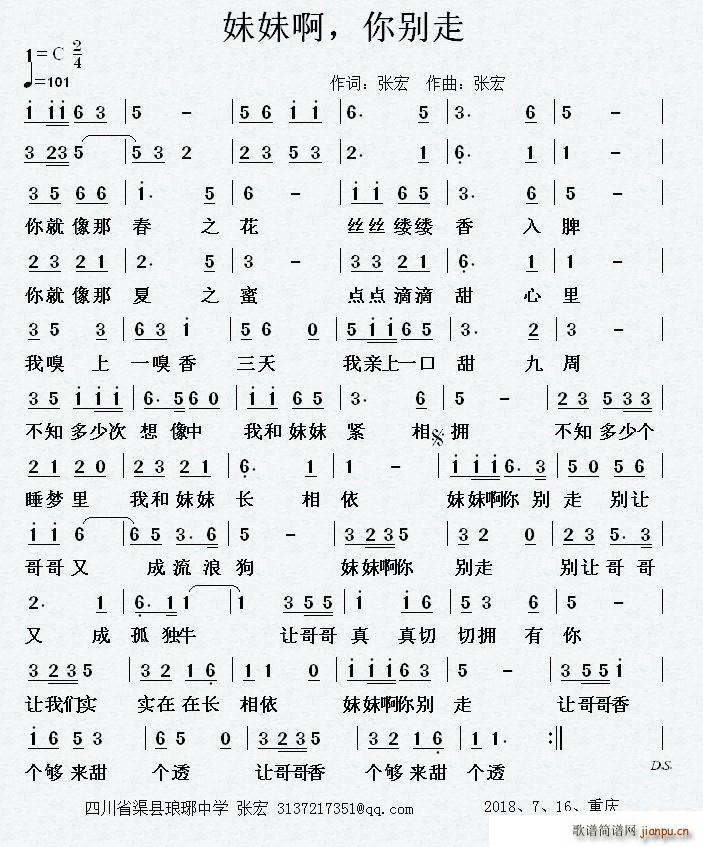 妹妹啊，你别走
1=C 2/4
♩=101
作词：张宏 作曲：张宏
1 1163 | 5 - | 56 11 | 6. 5 | 3. 6 | 5 - |
3235 | 53 2 | 23 53 | 2. 1 | 6. 1 | 1 - |
35 66 | 1. 5 | 6 - | 11 65 | 3. 6 | 5 - |
你就像那 春 之 花 丝丝缕缕 香 入 脾
23 21 | 2. 5 | 3 - | 33 21 | 6. 1 | 1 - |
你就像那 夏 之 蜜 点点滴滴 甜 心 里
35 3 | 63 1 | 56 0 | 51165 | 3. 2 | 3 - |
我嗅 上 一嗅香 三天 我亲上一口 甜 九 周
35 111 | 6.560 | 11 65 | 3. 6 | 5 - | 23 533 |
不知多少次 想像中 我和妹妹 紧 相 拥 不知多少个
21 20 | 23 21 | 6. 1 | 1 - | 1116.3 | 50 56 |
睡梦里 我和妹妹 长 相 依 妹妹啊你 别 走 别让
11 6 | 65 3.6 | 5 - | 3235 | 32 0 | 23 5.3 |
哥哥又 成流浪狗 妹妹啊你 别走 别让哥哥
2. 1 | 6.11 | 1 355 | 1 16 | 53 6 | 5 - |
又 成 孤独牛 让哥哥 真 真切 切拥 有 你
3235 | 32 16 | 11 0 | 11163 | 5 - | 3551 |
让我们实 实在在长 相依 妹妹啊你别 走 让哥哥香
16 53 | 65 0 | 323 3 | 32 16 | 11. :||
个够来甜 个透 让哥哥香 个够来甜 个透
D.S.
四川省渠县琅琊中学 张宏 3137217351@qq.com 2018、7、16、重庆
歌谱简谱网 jianpu.cn